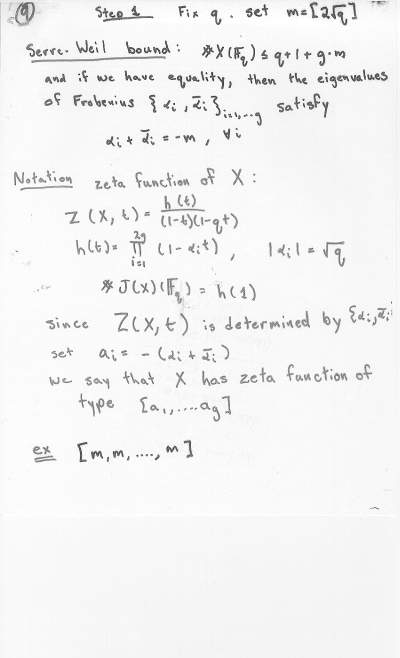 9 Step 1 Fix q. set m=[2√q]
Serre-Weil bound: #X(𝔽_q) ≤ q+1+g·m
and if we have equality, then the eigenvalues
of Frobenius {αᵢ, ᾱᵢ}_{i=1,...g} satisfy
αᵢ + ᾱᵢ = -m, ∀i
Notation zeta function of X:
Z(X,t) = h(t)/((1-t)(1-qt))
h(t) = ∏_{i=1}^{2g} (1-αᵢt), |αᵢ| = √q
#J(X)(𝔽_q) = h(1)
since Z(X,t) is determined by {αᵢ, ᾱᵢ
set aᵢ = -(αᵢ + ᾱᵢ)
we say that X has zeta function of
type [a₁,....a_g]
ex [m,m,....,m]